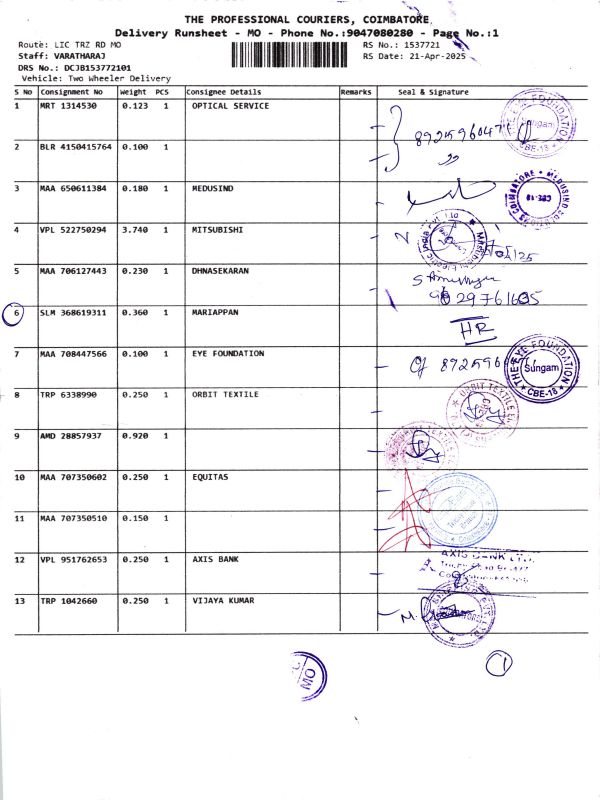 THE PROFESSIONAL COURIERS, COIMBATORE,
Delivery Runsheet - MO - Phone No.:9047080280 - Page No.:1
Route: LIC TRZ RD MO
RS No.: 1537721
Staff: VARATHARAJ
RS Date: 21-Apr-2025
DRS No.: DCJB153772101
Vehicle: Two Wheeler Delivery
S No Consignment No Weight PCS Consignee Details Remarks Seal & Signature
1 MRT 1314530 0.123 1 OPTICAL SERVICE
THE EYE FOUNDATION Sungam CBE-18
2 BLR 4150415764 0.100 1
3 MAA 650611384 0.180 1 MEDUSIND
COIMBATORE * MEDUSIND CBE-18
4 VPL 522750294 3.740 1 MITSUBISHI
Mitsubishi Electric India Pvt Ltd
5 MAA 706127443 0.230 1 DHNASEKARAN
6 SLM 368619311 0.360 1 MARIAPPAN
HR
7 MAA 708447566 0.100 1 EYE FOUNDATION
THE EYE FOUNDATION Sungam * CBE-18 *
8 TRP 6338990 0.250 1 ORBIT TEXTILE
ORBIT TEXTILE
9 AMD 28857937 0.920 1
10 MAA 707350602 0.250 1 EQUITAS
11 MAA 707350510 0.150 1
12 VPL 951762653 0.250 1 AXIS BANK
AXIS BANK LTD.
13 TRP 1042660 0.250 1 VIJAYA KUMAR
MO
1